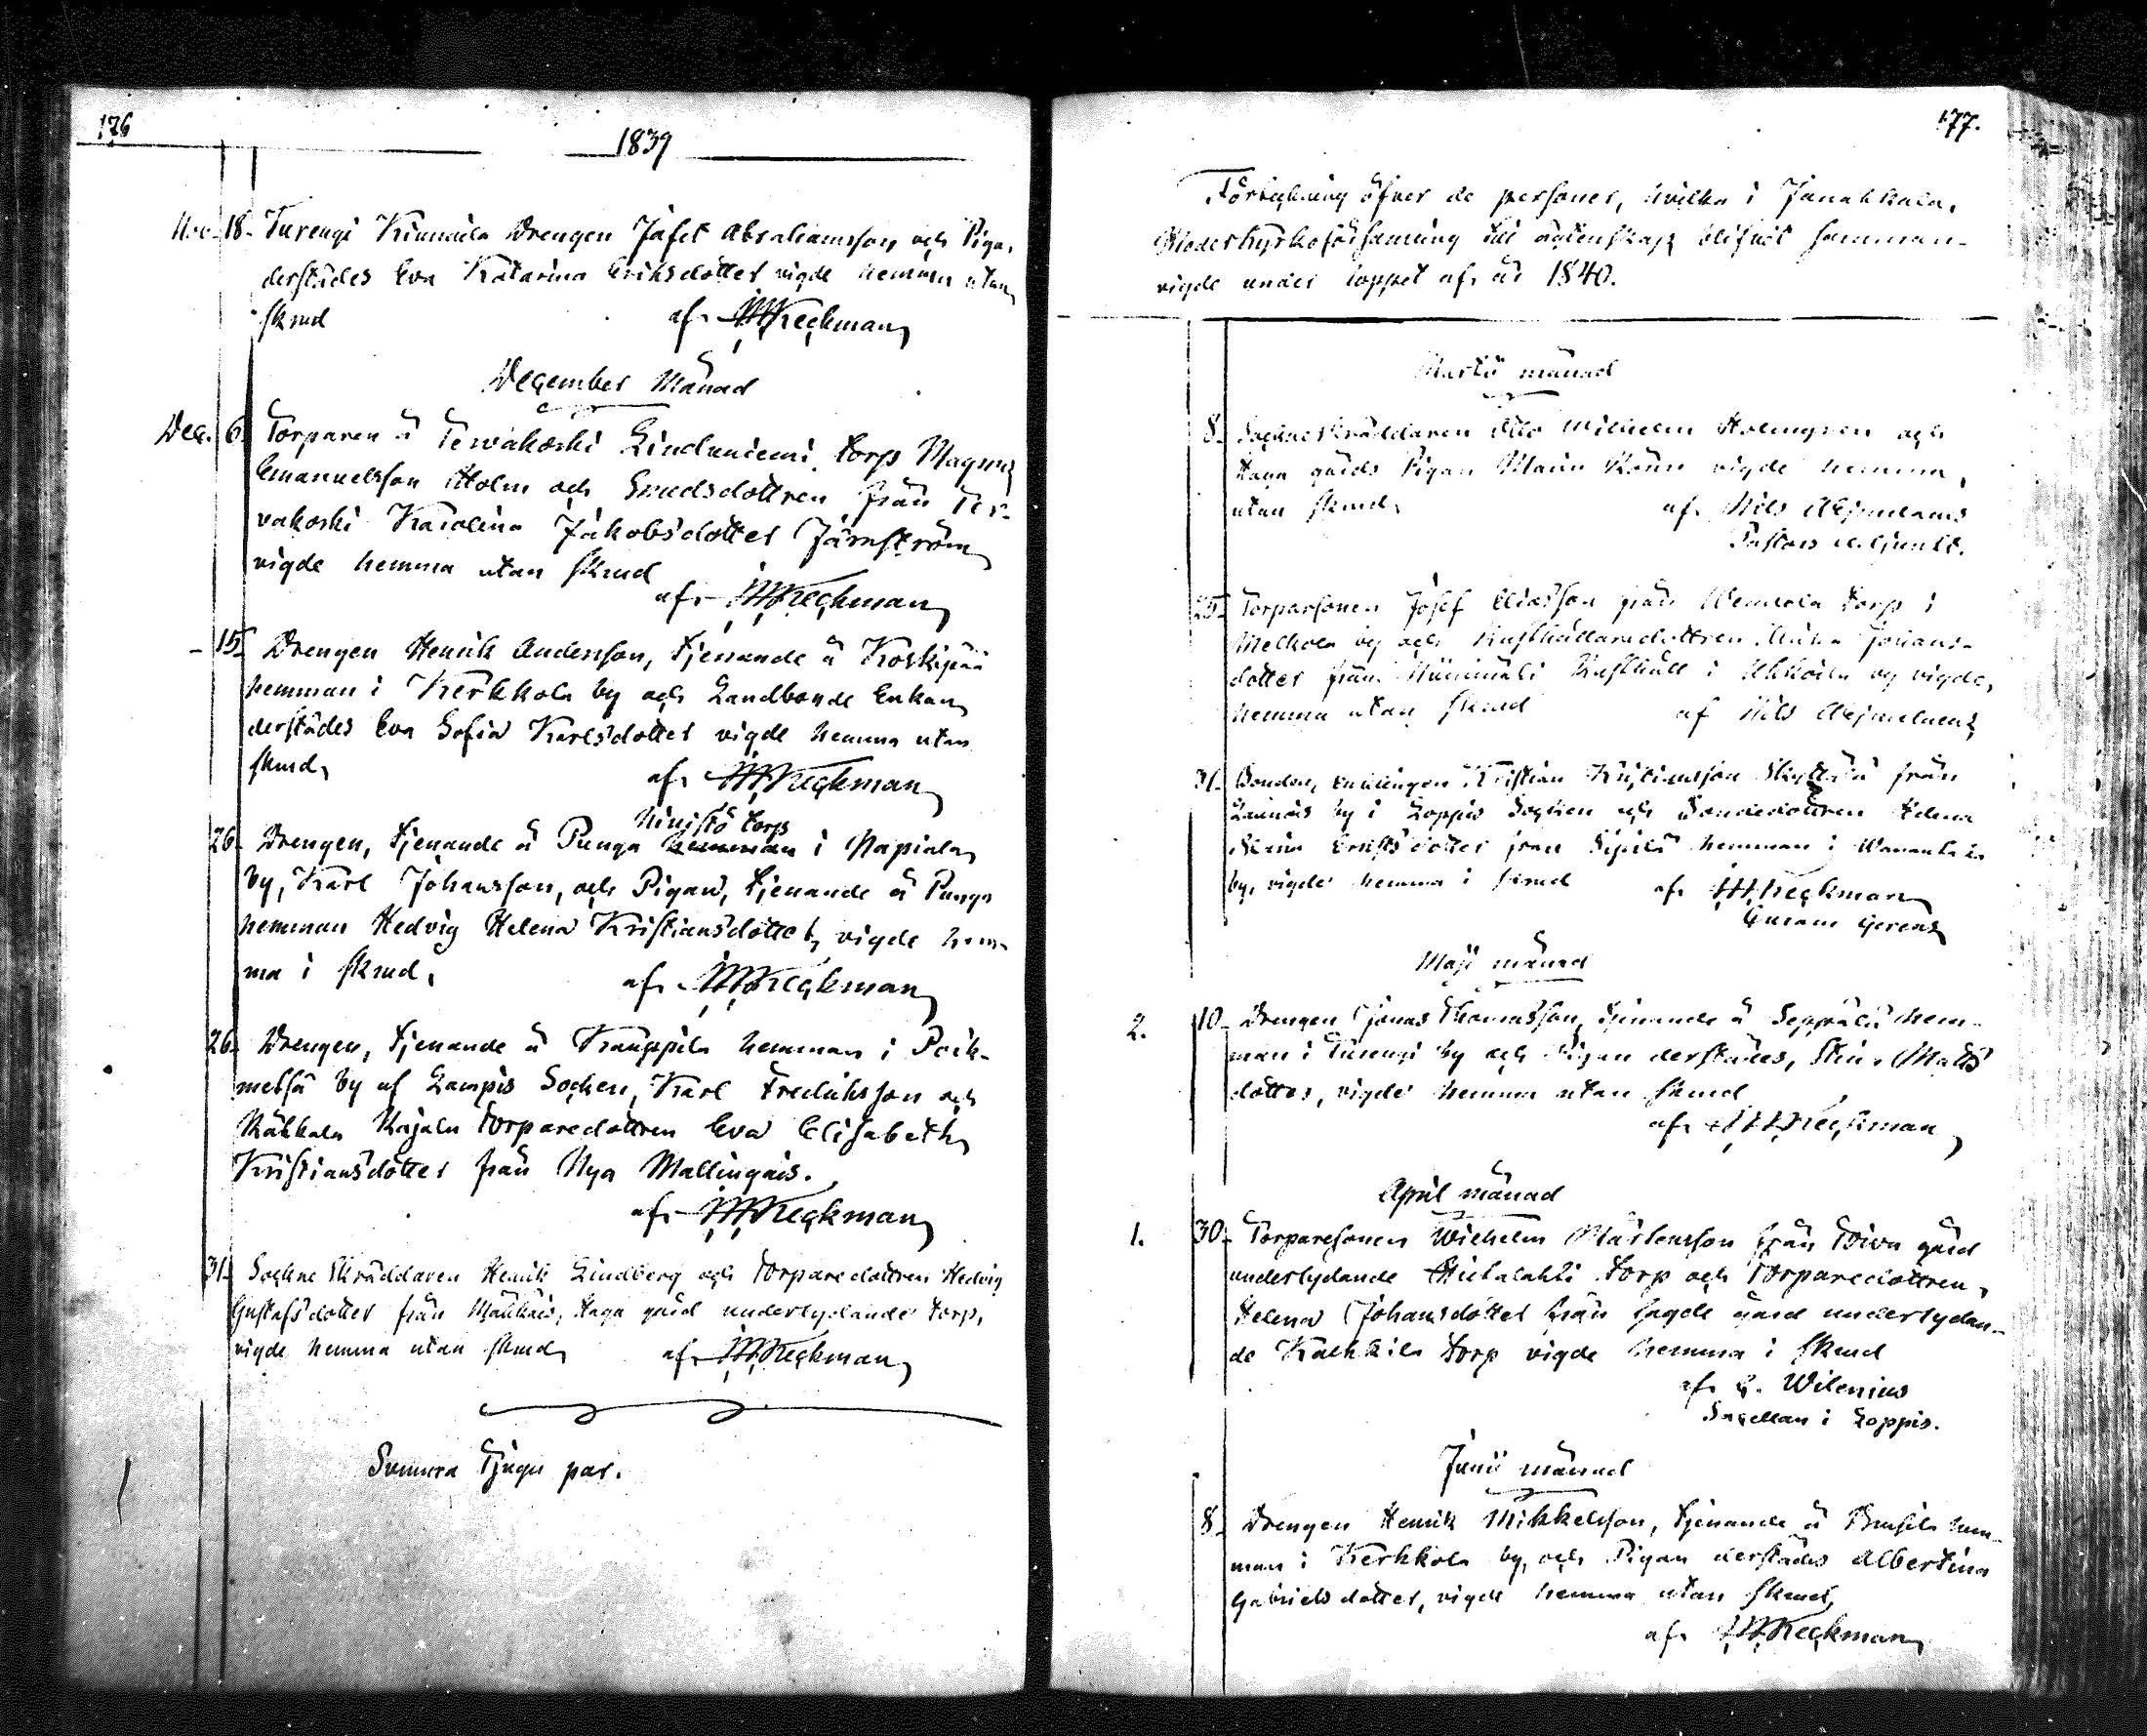 176
1839
Nov. 18. Turengi Kinnaila Drengen Jafet Abrahamsson och Pigan
derstädes Eva Katarina Eriksdotter vigde hemma utan
skrud af Heckman
December Månad
Dec. 6. Torparen å Terwakoski Linduniemi torp Magnus
Emanuelsson Holm och Smedsdottren från Ter-
vakoski Karolina Jakobsdotter Järnström
vigde hemma utan skrud
af Heckman
- 15. Drengen Henrik Andersson, tjenande å Koskipää
hemman i Kerkkola by och Landbonde Enkan
derstädes Eva Sofia Karlsdotter vigde hemma utan
skrud, af Heckman
Ninistö torp
26. Drengen, tjenande å Punga hemman i Napiala
by, Karl Johansson, och Pigan, tjenande å Punga
hemman Hedvig Helena Kristiansdotter, vigde hem-
ma i skrud, af Heckman
26. Drengen, tjenande å Kauppila hemman i Poik-
metsä by af Lampis Socken, Karl Fredriksson och
Räkkala Kajala torparedottren Eva Elisabeth
Kristiansdotter från Nya Mallingais.
af Heckman
31. Sockne Skräddaren Henrik Lindberg och torparedottren Hedvig
Gustafsdotter från Haga gård underlydande torp,
vigde hemma utan skrud, af Heckman
Summa Tjugu par.
177.
Förtekning öfver de personer, hvilka i Janakkala,
Moderkyrkoförsamling till äktenskap blifvit samman-
vigde under loppet af år 1840.
Martii månad
8. Sockneskräddaren Otto Wilhelm Holmgren och
Haga gårds Pigan Maria vigde hemma,
utan skrud, af Nils Aejmelaeus
Pastors Adjunkt.
25. Torparsonen Josef Eliasson från torp i
Melkola by och Rusthållaredottren Johans-
dotter från Rusthåll i by vigde,
hemma utan skrud af Nils Aejmelaeus
31. Bonden, enklingen Kristian Kristiansson från
by i Loppis Socken och Bondedottren Helena
Ernstsdotter från Sipilä hemman i Wanantaka
by, vigde hemma i skrud af Heckman
Curam Gerens
Maji månad
2. 10. Drengen Jonas Thomasson, tjenande å Seppälä hem-
man i Turengi by och Pigan derstädes, Stina Matts
dotter, vigde hemma utan skrud
af Heckman
April månad
1. 30. Torparesonen Wilhelm Mårtensson från Toivu gård
underlydande Hietalahti torp och Torparedottren,
Helena Johansdotter från sagde gård underlydan-
de torp vigde hemma i skrud
af G. Wilenius
Sacellan i Loppis.
Junii månad
8. Drengen Henrik Mikkelsson, tjenande å hem-
man i Kerkkola by, och Pigan derstädes Albertina
Gabrielsdotter, vigde hemma utan skrud,
af Heckman